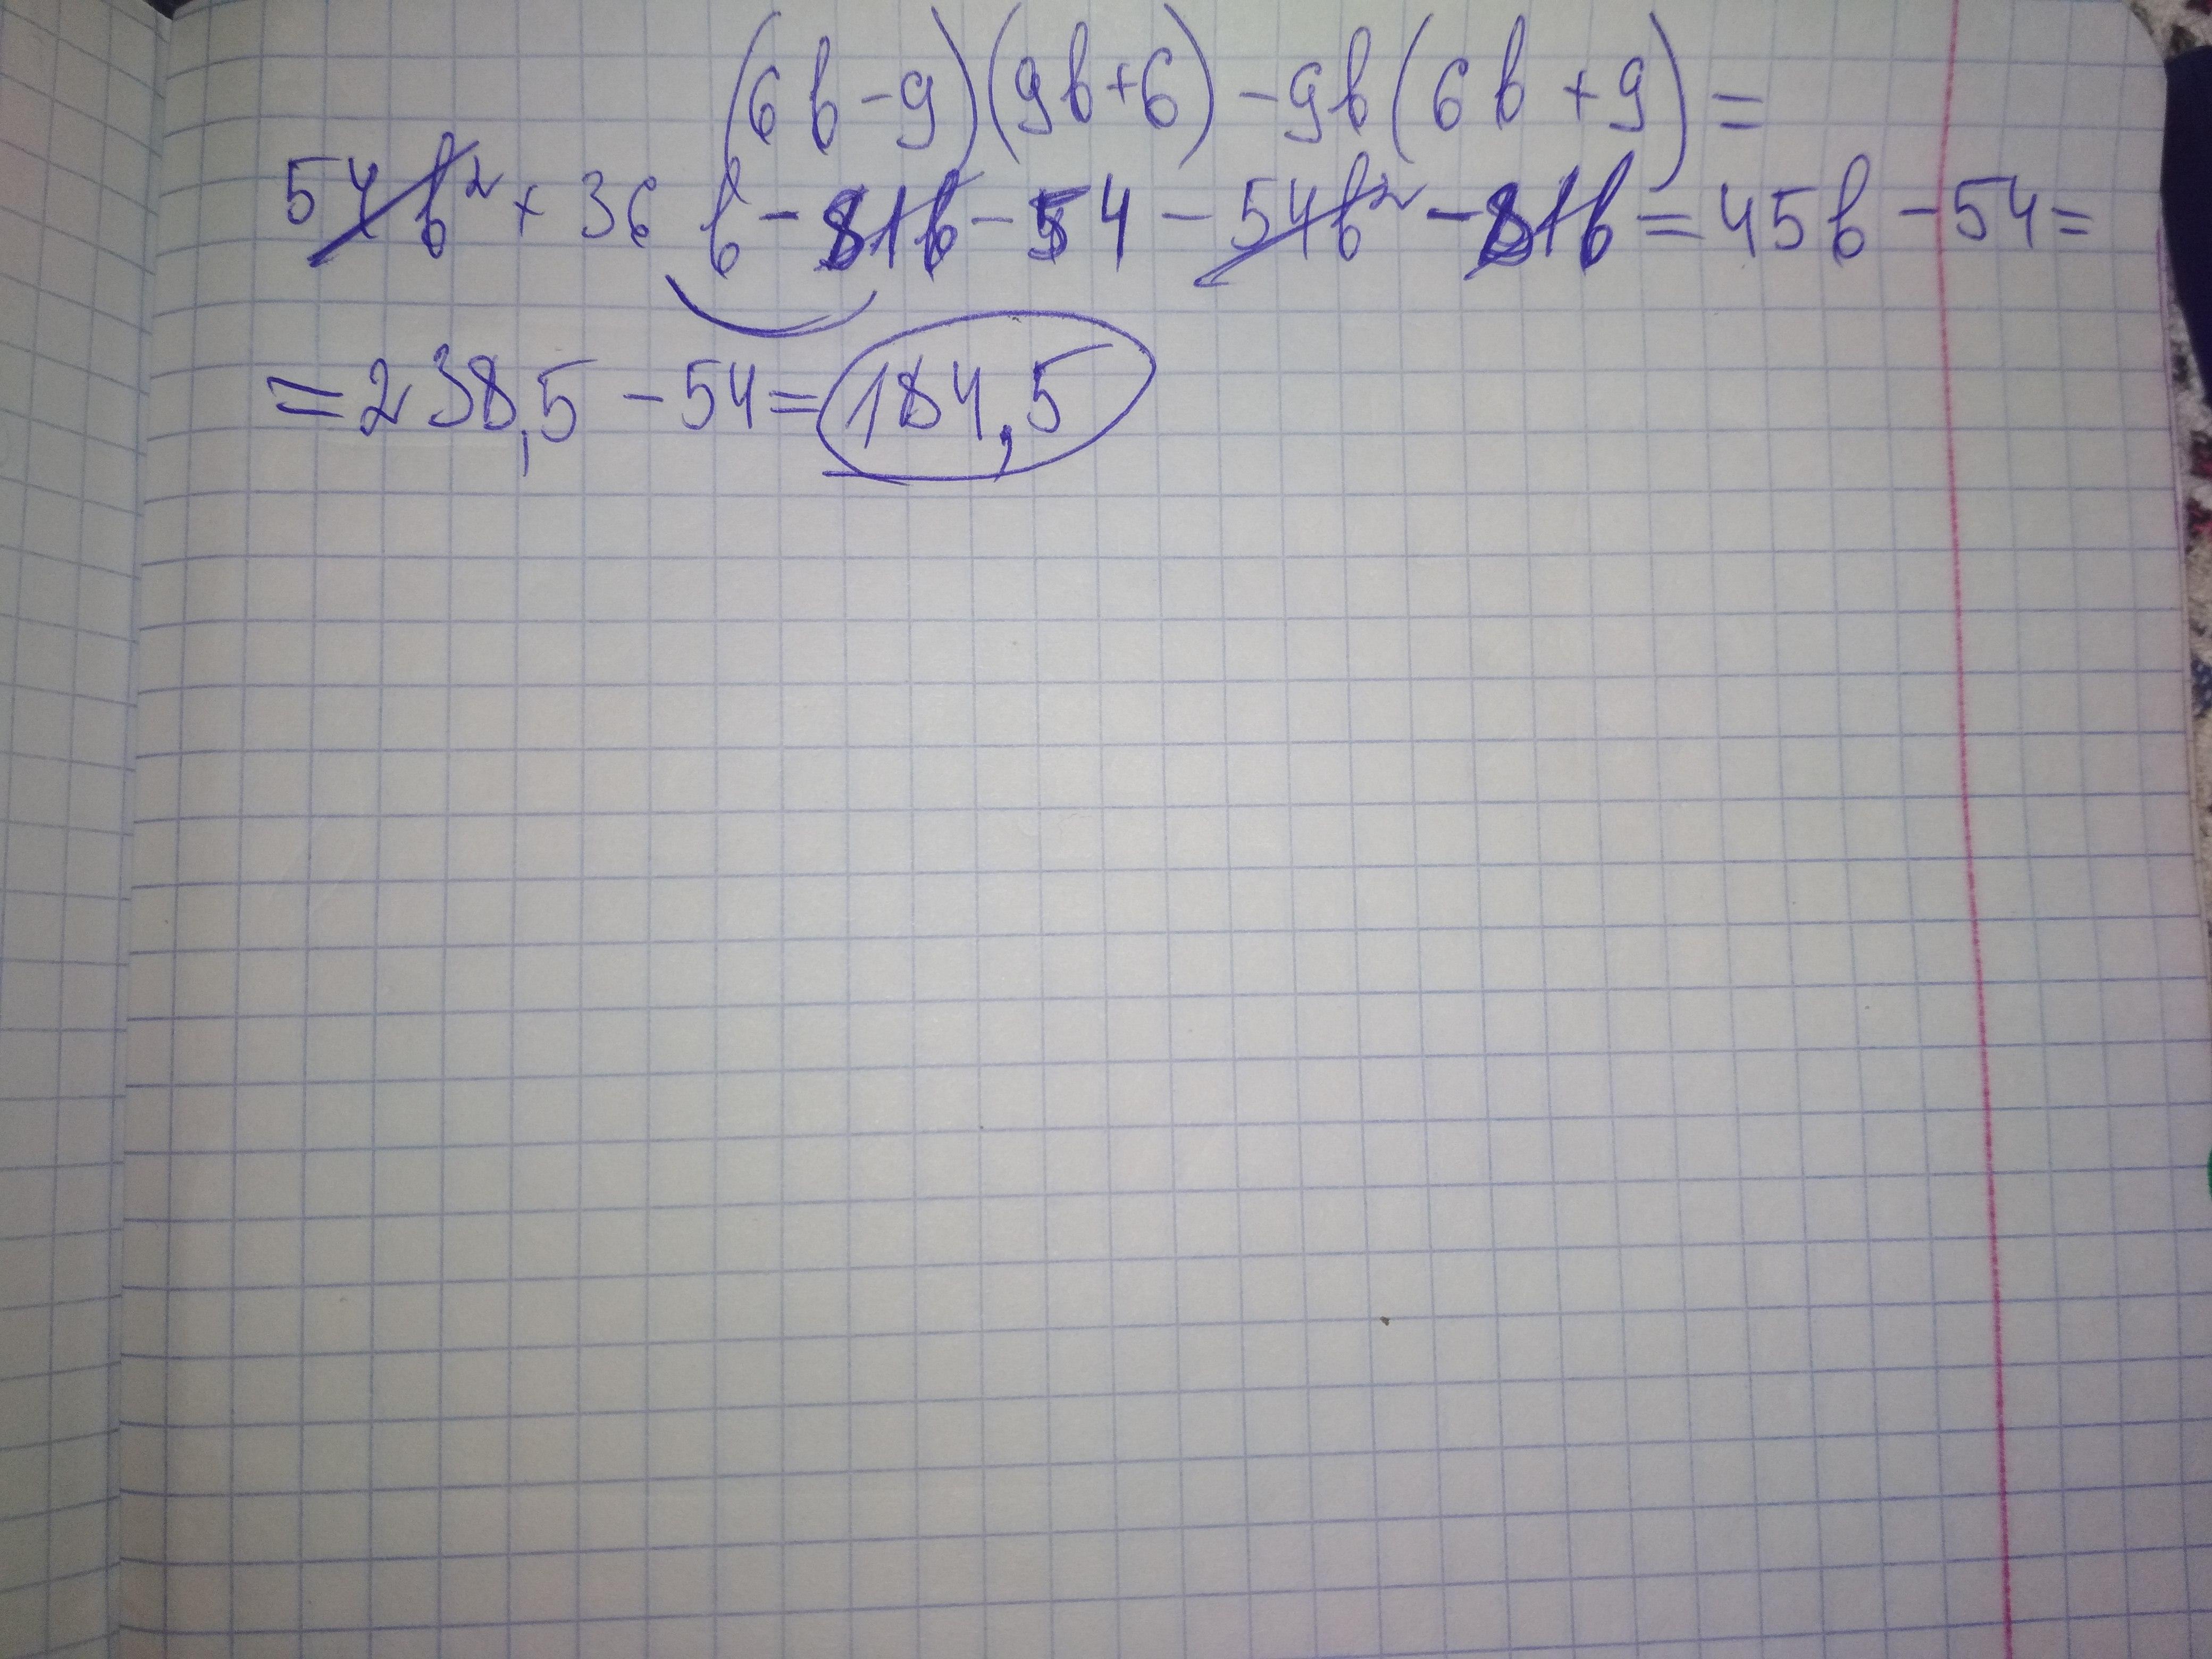 (6b-9)(9b+6)-9b(6b+9)=
54b²+36b-81b-54-54b²-81b=45b-54=
=238,5-54=184,5